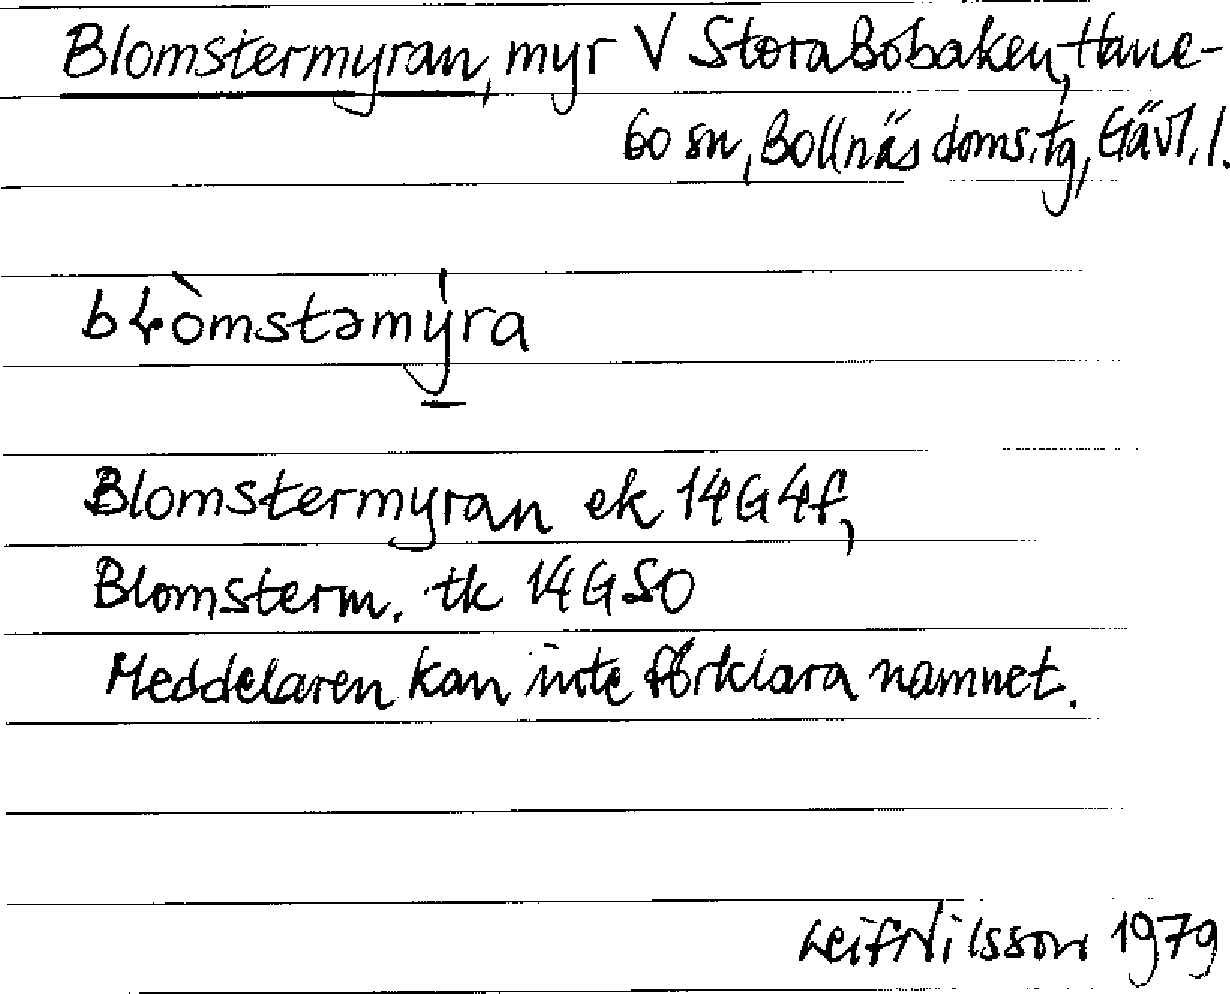 Blomstermyran, myr V Stora Bobaken, Hane-
bo sn, Bollnäs doms.tg, Gävl.l.
bɫòmstəmý̠ra
Blomstermyran ek 14G4f,
Blomsterm. tk 14GSO
Meddelaren kan inte förklara namnet.
Leif Nilsson 1979